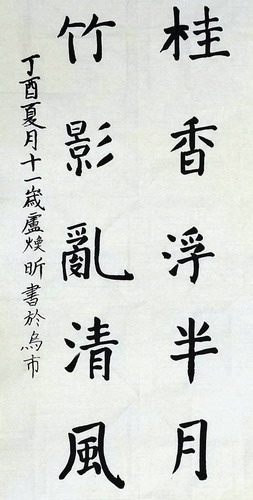 桂香浮半月
竹影亂清風
丁酉夏月十一歲盧煥昕書於烏市